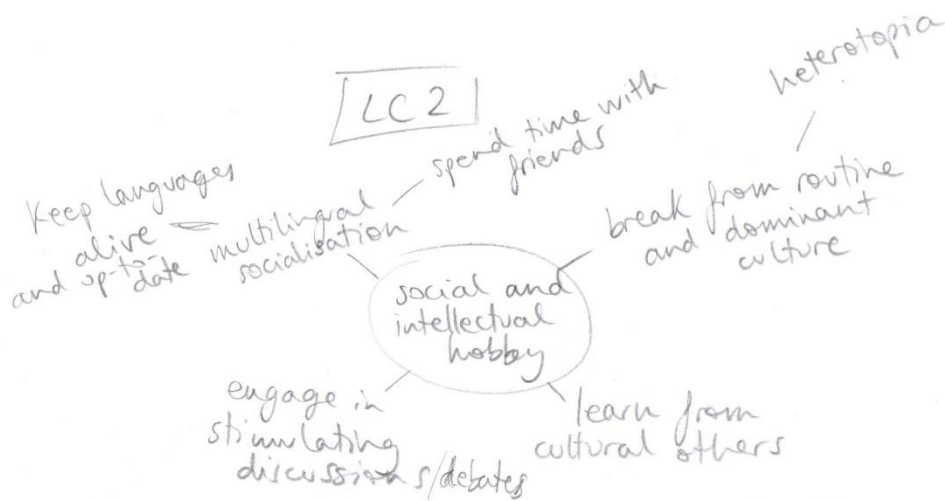 LC 2
heterotopia
spend time with
friends
Keep languages
alive
and up-to-
date
multilingual
socialisation
break from routine
and dominant
culture
social and
intellectual
hobby
engage in
stimulating
discussions/debates
learn from
cultural others